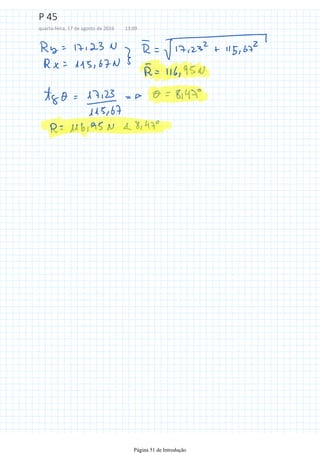 P 45
quarta-feira, 17 de agosto de 2016 13:09
Ry = 17,23 N } R̄ = √17,23² + 115,67²
Rx = 115,67 N } R̄ = 116,95 N
tg θ = 17,23 / 115,67 => θ = 8,47°
R = 116,95 N ∠ 8,47°
Página 51 de Introdução